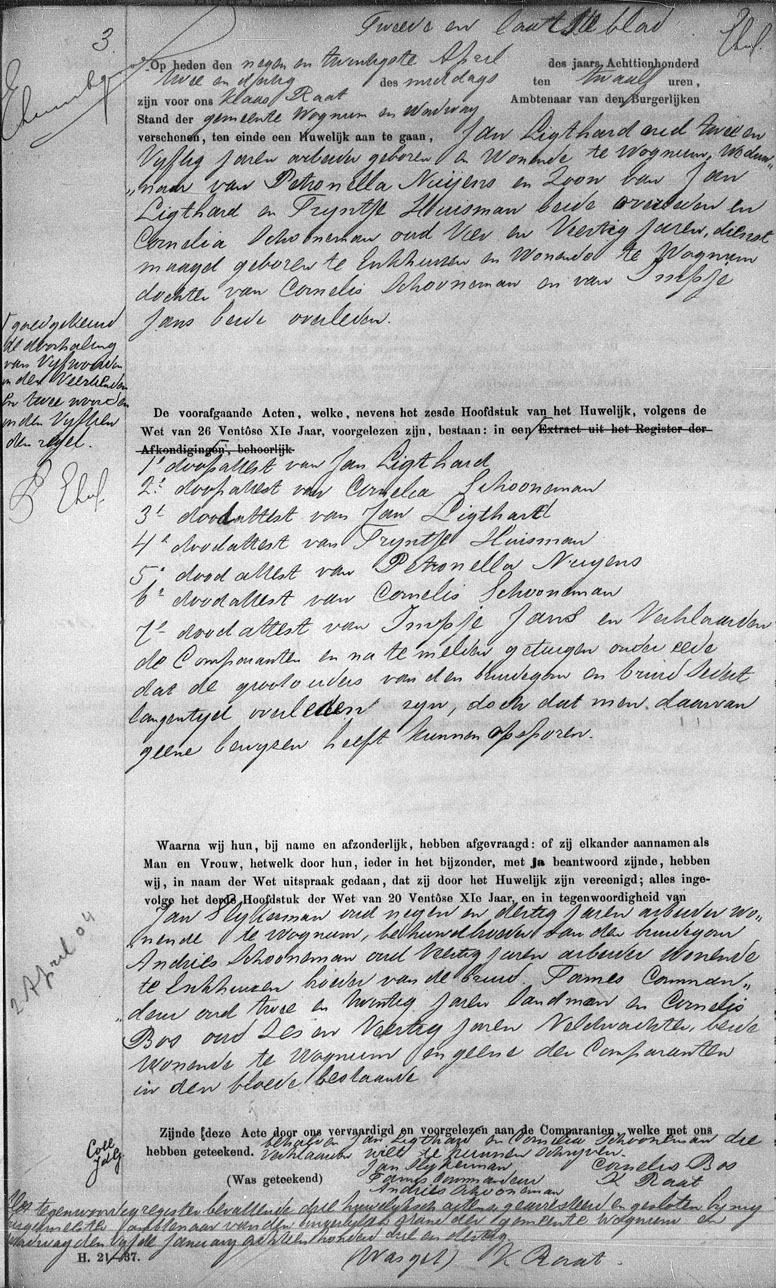 Tweede en laatste blad
3.
Op heden den negen en twintigste April des jaars Achttienhonderd
twee en dertig des middags ten twaalf uren,
zijn voor ons Klaas Raat Ambtenaar van den Burgerlijken
Stand der gemeente Wognum en Wadway
verschenen, ten einde een Huwelijk aan te gaan, Jan Ligthard oud twee en
Vyftig Jaren arbeider geboren en Wonende te Wognum, Weduw„
„naar van Petronella Nuijens en Zoon van Jan
Ligthard en Tryntje Huisman beide overleden en
Cornelia Schooneman oud Vier en Veertig Jaren, dienst
maagd geboren te Enkhuizen en Wonende te Wognum
dochter van Cornelis Schooneman en van Impje
Jans beide overleden.
goedgekeurd
de doorhaling
van Vyf woorden
in den Veertienden
en twee woorden
in den Vyftien
den regel.
De voorafgaande Acten, welke, nevens het zesde Hoofdstuk van het Huwelijk, volgens de
Wet van 26 Ventôse XIe Jaar, voorgelezen zijn, bestaan: in een Extract uit het Register der
Afkondigingen, behoorlijk
1e doopattest van Jan Ligthard
2e doopattest van Cornelia Schooneman
3e doodattest van Jan Ligthard
4e doodattest van Tryntje Huisman
5e doodattest van Petronella Nuyens
6e doodattest van Cornelis Schooneman
7e doodattest van Impje Jans en Verklaarden
de Comparanten en na te melden getuigen onder eede
dat de grootouders van den bruidegom en bruid sedert
langentyd overleden zyn, doch dat men daarvan
geene bewyzen heeft kunnen opsporen.
Waarna wij hun, bij name en afzonderlijk, hebben afgevraagd: of zij elkander aannamen als
Man en Vrouw, hetwelk door hun, ieder in het bijzonder, met ja beantwoord zijnde, hebben
wij, in naam der Wet uitspraak gedaan, dat zij door het Huwelijk zijn vereenigd; alles inge-
volge het derde Hoofdstuk der Wet van 20 Ventôse XIe Jaar, en in tegenwoordigheid van
Jan Slykerman oud negen en dertig Jaren arbeider wo„
nende te Wognum, behuwdbroeder van den bruidegom
Andries Schooneman oud Veertig Jaren arbeider Wonende
te Enkhuizen broeder van de bruid Pames Comman„
„deur oud twee en twintig Jaren landman en Cornelis
Bos oud Zes en Veertig Jaren Veldwachter, beide
wonende te Wognum en geene der Comparanten
in den bloede bestaande
2 April 04
Coll
JdG
Zijnde deze Acte door ons vervaardigd en voorgelezen aan de Comparanten, welke met ons
hebben geteekend. behalven Jan Ligthard en Cornelia Schooneman die
verklaarden niet te kunnen schryven.
(Was geteekend) Jan Slykerman, Cornelis Bos
Pames Commandeur K Raat
Andries Schooneman
Het tegenwoordig register bevattende drie huwelyksche acten is gearresteerd en gesloten by my
burgemeester, ambtenaar van den burgerlyken stand der gemeente Wognum en
Wadway den vyfde January achttienhonderd drie en dertig.
H. 21—37. (Was get) K Raat.